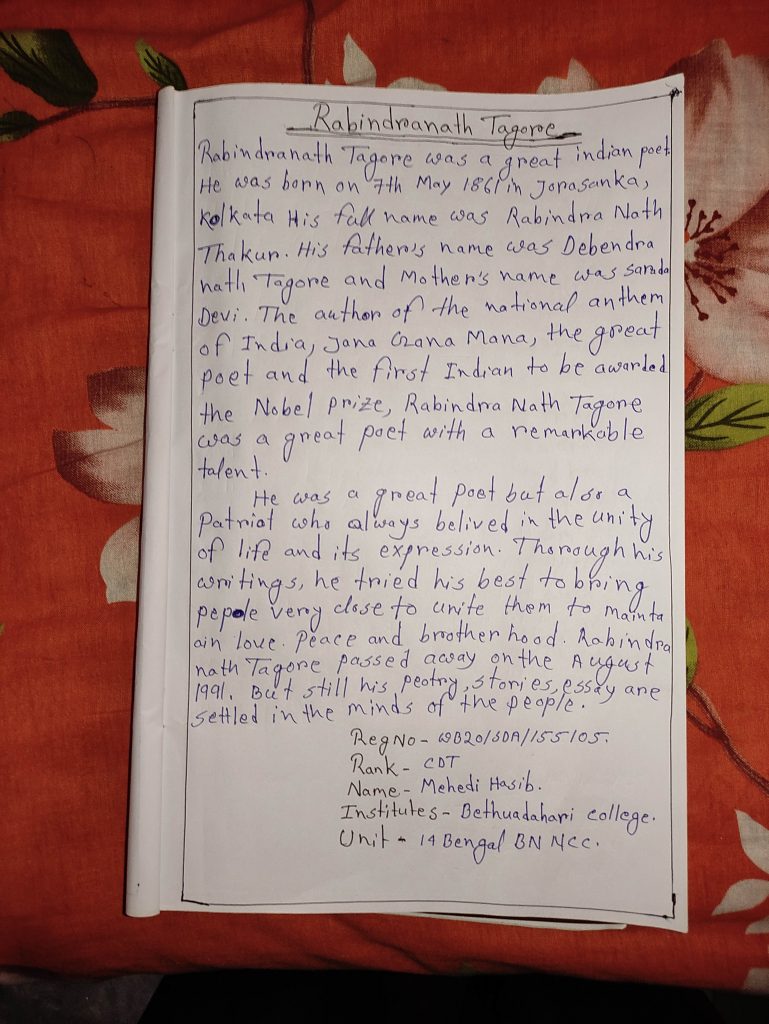 Rabindranath Tagore
Rabindranath Tagore was a great indian poet.
He was born on 7th May 1861 in Jorasanka,
Kolkata His full name was Rabindra Nath
Thakur. His father's name was Debendra
nath Tagore and Mother's name was Sarada
Devi. The author of the national anthem
of India, Jana Gana Mana, the great
poet and the first Indian to be awarded
the Nobel prize, Rabindra Nath Tagore
was a great poet with a remarkable
talent.
He was a great poet but also a
Patriot who always belived in the unity
of life and its expression. Thorough his
writings, he tried his best to bring
pepole very close to unite them to mainta
ain love. Peace and broother hood. Rabindra
nath Tagore passed away on the August
1991. But still his peotry, stories, essay are
settled in the minds of the people.
Reg No - WB20/SDA/155105.
Rank - CDT
Name - Mehedi Hasib.
Institutes - Bethuadahari college.
Unit - 14 Bengal BN NCC.